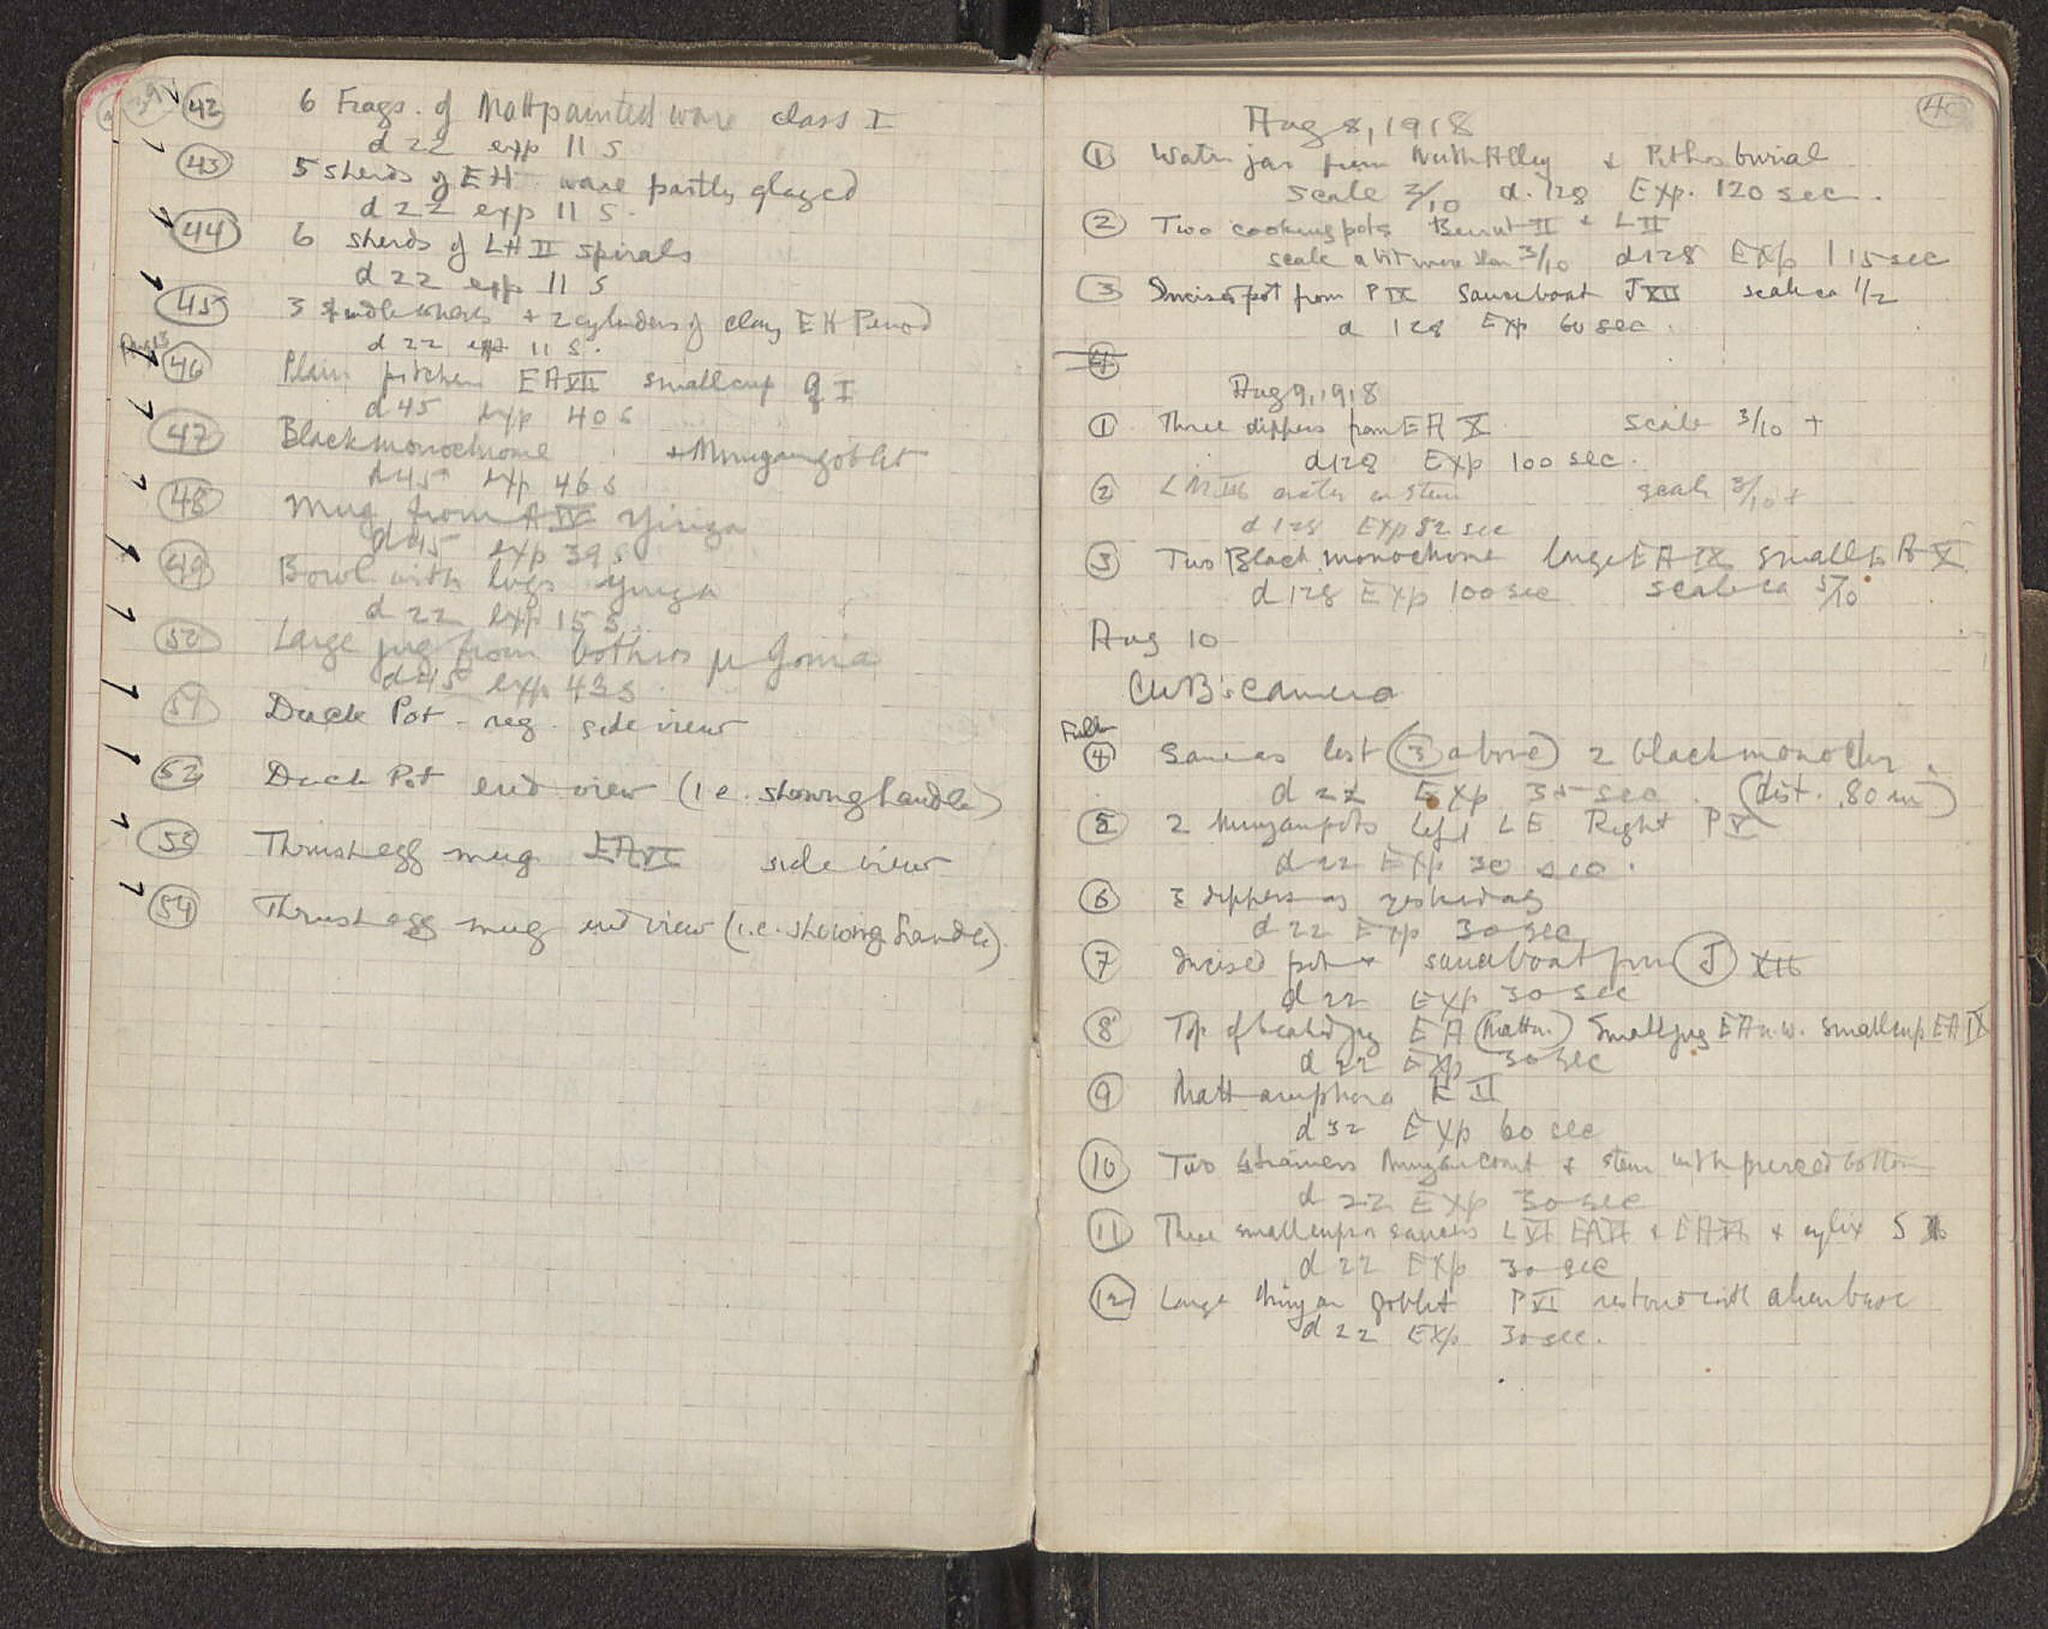 39
42 6 Frags. of Mattpainted ware class I
d 22 exp 11 s
43 5 sherds of EH ware partly glazed
d 22 exp 11 s.
44 6 sherds of LH II spirals
d 22 exp 11 s
45 3 spindlewhorls + 2 cylinders of clay EH Period
d 22 exp 11 s.
46 Plain pitcher EA VII small cup I
d 45 exp 40 s
47 Blackmonochrome + Minyan goblet
d 45 exp 46 s
48 Mug from A IV Yiriza
d 45 exp 39 s
49 Bowl with lugs Yiriza
d 22 exp 15 s.
50 Large jug from bothros μ Gonia
d 45 exp 43 s.
51 Duck Pot - reg. side view
52 Duck Pot end view (i.e. showing handle)
53 Thrush egg mug EA VI side view
54 Thrush egg mug end view (i.e. showing handle)
40
Aug 8, 1918
1 Water jar from North Alley & Pithos burial
scale 3/10 d. 128 Exp. 120 sec.
2 Two cooking pots Burnt II + L II
scale a bit more than 3/10 d 128 Exp 115 sec
3 Incised pot from P IX Sauceboat J XII scale ca 1/2
d 128 Exp 60 sec.
4
Aug 9, 1918
1 Three dippers from EA X scale 3/10 +
d 128 Exp 100 sec.
2 LM III crater on stem scale 3/10 +
d 128 Exp 82 sec
3 Two Black monochrome large EA IX small A X
d 128 Exp 100 sec scale ca 3/10
Aug 10
CWB's camera
4 Same as last (3 above) 2 blackmonochr.
d 22 Exp 35 sec. (dist. .80 m)
5 2 Minyan pots left L E Right P V
d 22 Exp 30 sec.
6 3 dippers as yesterday
d 22 Exp 30 sec
7 Incised pot + sauceboat from J XII
d 22 Exp 30 sec
8 Top of beaked jug EA (Matton.) Small jug EA n.w. small cup EA IX
d 22 Exp 30 sec
9 Matt amphora E II
d 32 Exp 60 sec
10 Two strainers Minyan coarse & stem with pierced bottom
d 22 Exp 30 sec
11 Three small cups or saucers L VI EA VI & EA VI & cylix S
d 22 Exp 30 sec
12 Large Minyan goblet P VI restored with alien base
d 22 Exp 30 sec.